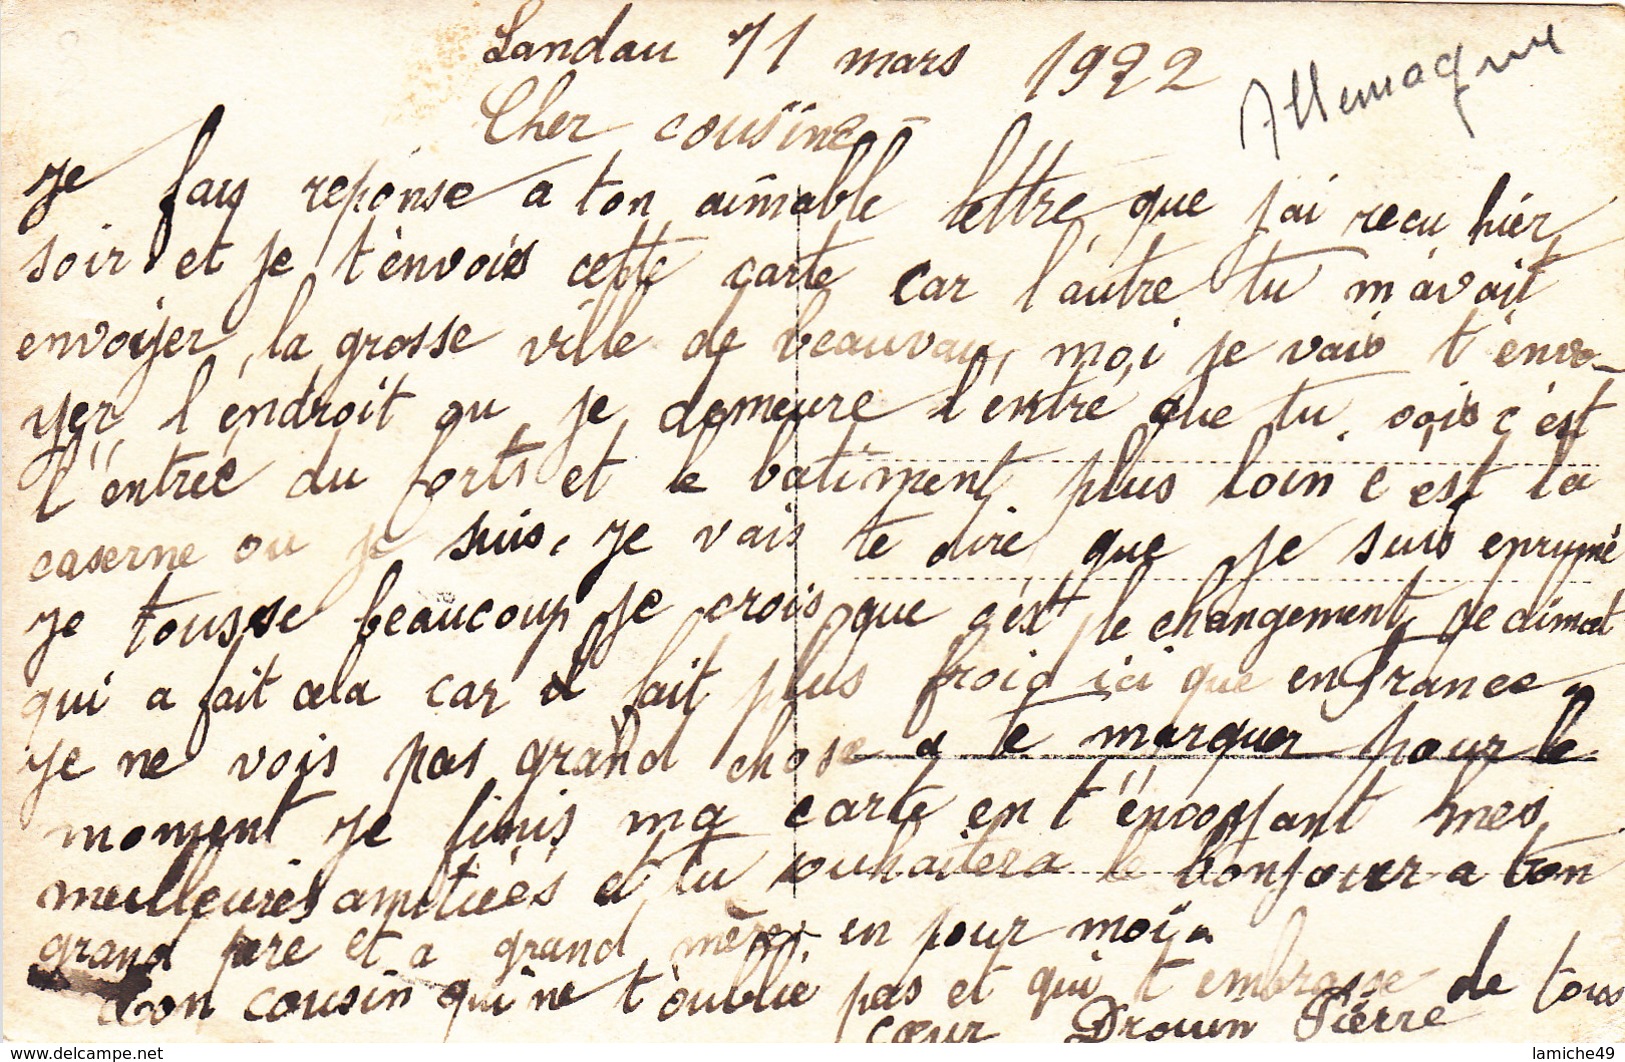 Landau 11 mars 1922
Allemagne
Cher cousine
Je fais réponse a ton aimable lettre que j'ai recu hier
soir et je t'envois cette carte car l'autre tu m'avait
envoyer la grosse ville de beauvais, moi je vais t'envo-
yer l'endroit ou je demeure l'entré que tu vois c'est
l'entrée du forts et le batiment plus loin c'est la
caserne ou je suis, je vais te dire que je suis enrumé
je tousse beaucoup je crois que c'est le changement de climat
qui a fait cela car il fait plus froid ici que en France.
Je ne vois pas grand chose a te marquer pour le
moment je finis ma carte en t'envoyant mes
meilleures amitiées et tu souhaitera le bonjour a ton
grand pere et a grand mère en pour moi.
Ton cousin qui ne t'oublie pas et qui t'embrasse de tous
cœur Drouin Pierre
lamiche49